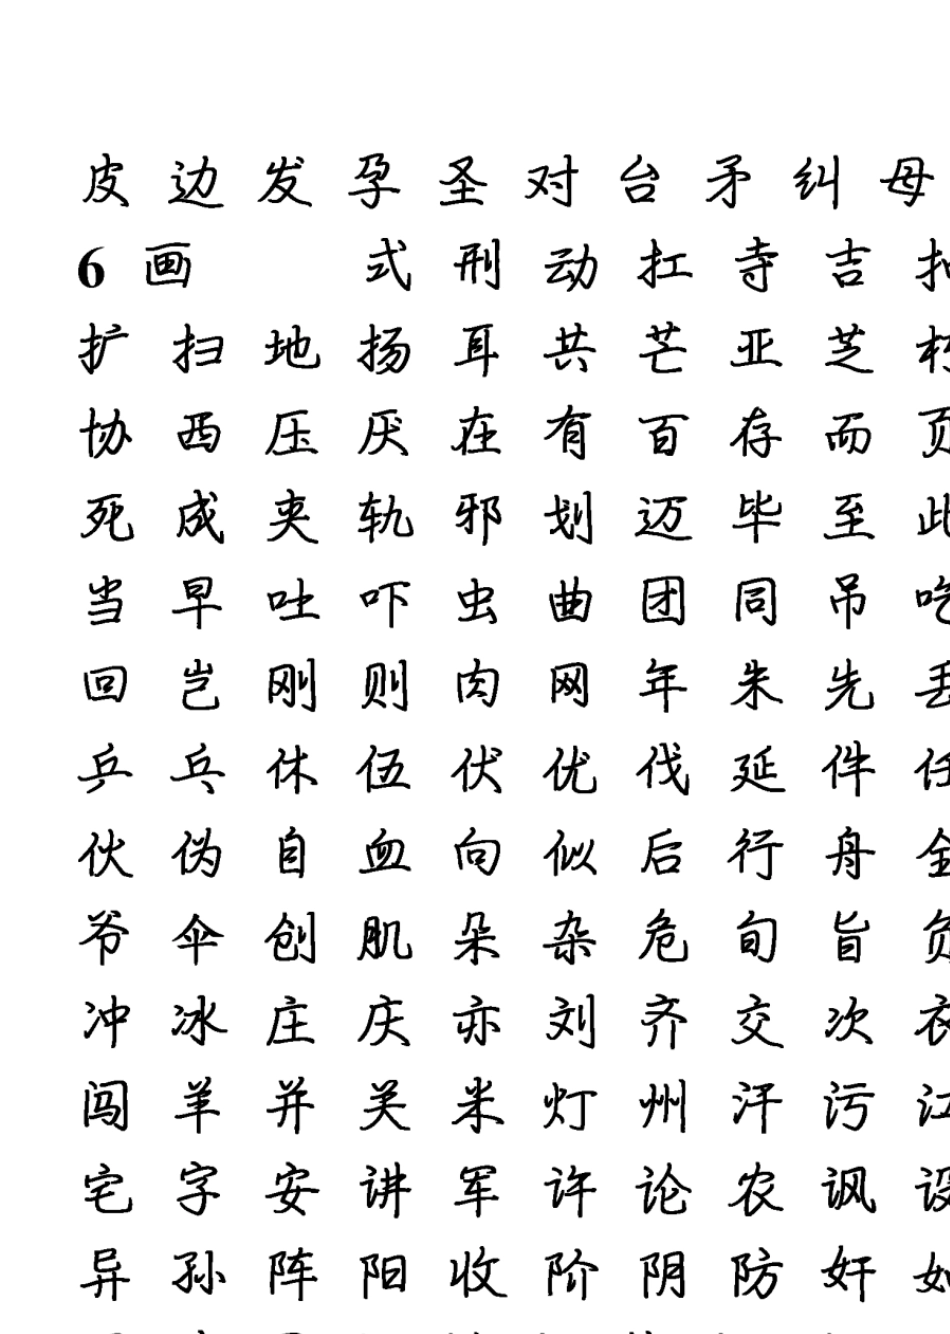 皮 边 发 孕 圣 对 台 矛 纠 母
6 画 式 刑 动 扛 寺 吉
扩 扫 地 扬 耳 共 芒 亚 芝
协 西 压 厌 在 有 百 存 而 页
死 成 夹 轨 邪 划 迈 毕 至 此
当 早 吐 吓 虫 曲 团 同 吊 吃
回 岂 刚 则 肉 网 年 朱 先 丢
乒 乓 休 伍 伏 优 伐 延 件 任
伙 伪 自 血 向 似 后 行 舟 全
爷 伞 创 肌 朵 杂 危 旬 旨 负
冲 冰 庄 庆 亦 刘 齐 交 次 衣
闯 羊 并 关 米 灯 州 汗 污 江
宅 字 安 讲 军 许 论 农 讽 设
异 孙 阵 阳 收 阶 阴 防 奸 如